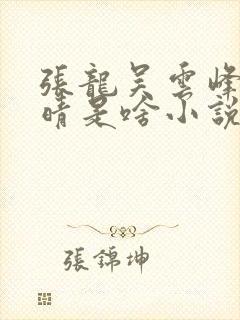 張龍吴雲峰
晴是啥小說
張錦坤